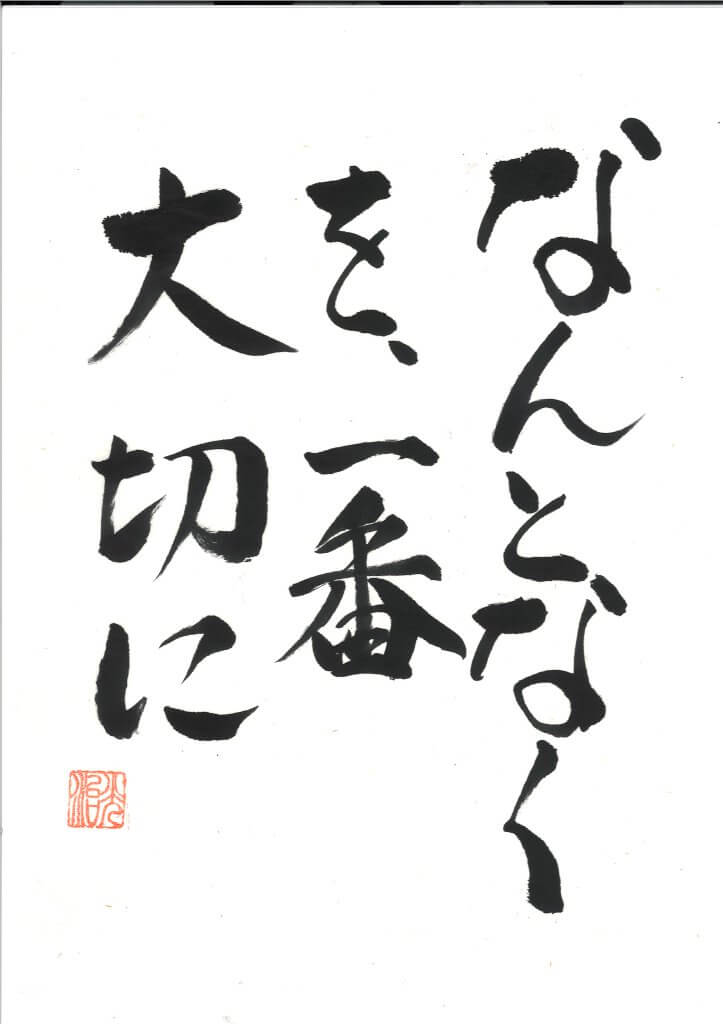 なんとなく
を、一番
大切に